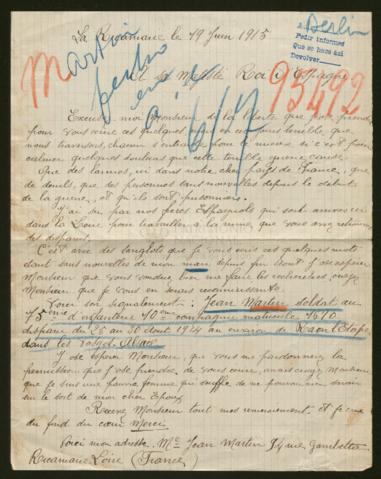 La Ricamarie le 19 Juin 1915
Berlin
Pedir informes
Que se hace así
Devolver
A Sa Majesté Roi d'Espagne
Martin
berlin
6/12
95492
Excusez moi Monsieur de la liberté que je prend,
pour vous écrire ces quelques
nous traversons, chacun s'entraide pour le mieux si c'est pour
calmer quelques douleurs que cette terrible guerre cause.
Que des larmes, ici dans notre cher pays de France, que
de deuils, que des personnes sans nouvelles depuis le début
de la guerre, et qu'ils sont prisonniers.
J'ai su par nos frères Espagnols qui sont arrivés ici
dans la Loire, pour travailler à la mine, que vous avez
des disparus.
C'est avec des sanglots que je vous écris ces quelques mots
étant sans nouvelles de mon mari depuis fin Août. J'ose espérer
Monsieur que vous voudrez bien me faire les recherches, croyez
Monsieur que je vous en serais reconnaissante.
Voici son signalement: Jean Martin soldat au
75ème d'infanterie 10ème compagnie matricule 1610
disparu du 28 au 30 Août 1914 au environ de Raon l'Etape
dans les Vosges.
J'ose espérer Monsieur, que vous me pardonnerez la
permission que j'ose prendre, de vous écrire, mais croyez Monsieur
que je suis une pauvre femme qui souffre de ne pouvoir rien savoir
sur le sort de mon cher Epoux.
Recevez Monsieur tout mes remerciements et je vous
du fond du cœur Merci.
Voici mon adresse. Me Jean Martin 94 rue Gambetta
Ricamarie Loire (France)